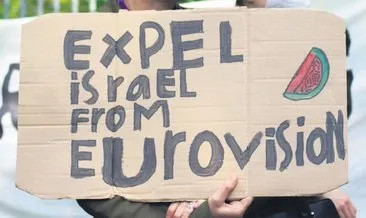 EXPEL
isRaEL
FROM
EUROVISION